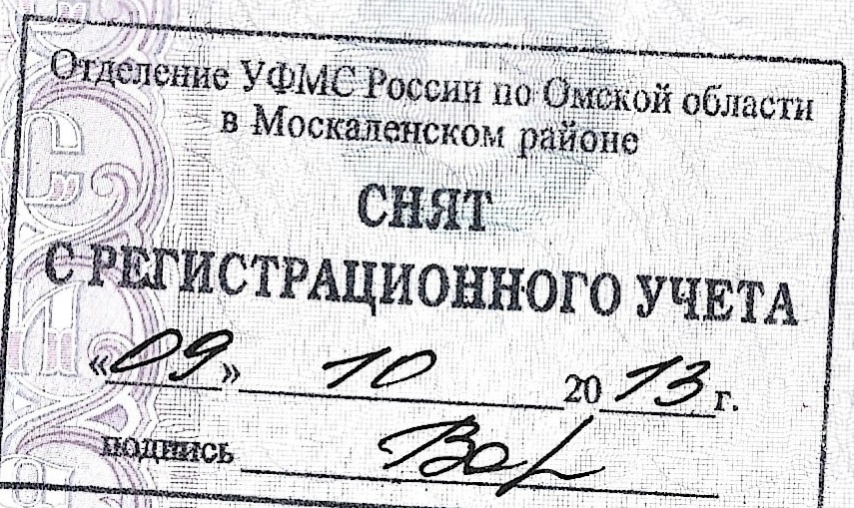 Отделение УФМС России по Омской области
в Москаленском районе
СНЯТ
С РЕГИСТРАЦИОННОГО УЧЕТА
«09» 10 2013 г.
подпись